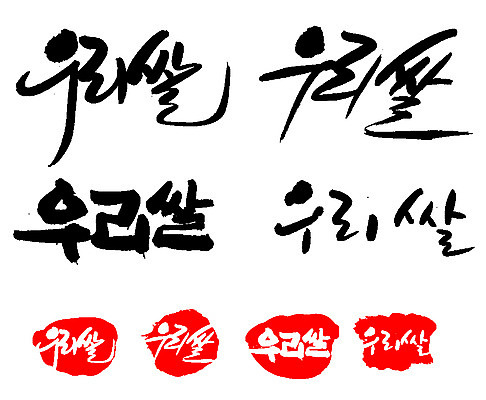 우리쌀 우리쌀
우리쌀 우리쌀
우리쌀 우리쌀 우리쌀 우리쌀